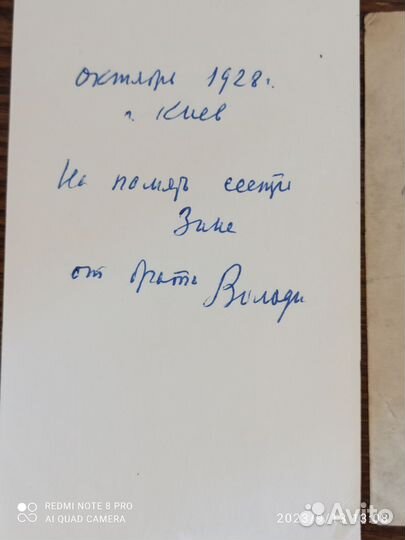 октября 1928 г.
г. Киев
На память сестре
Зине
от брата Володи
REDMI NOTE 8 PRO
AI QUAD CAMERA
Avito